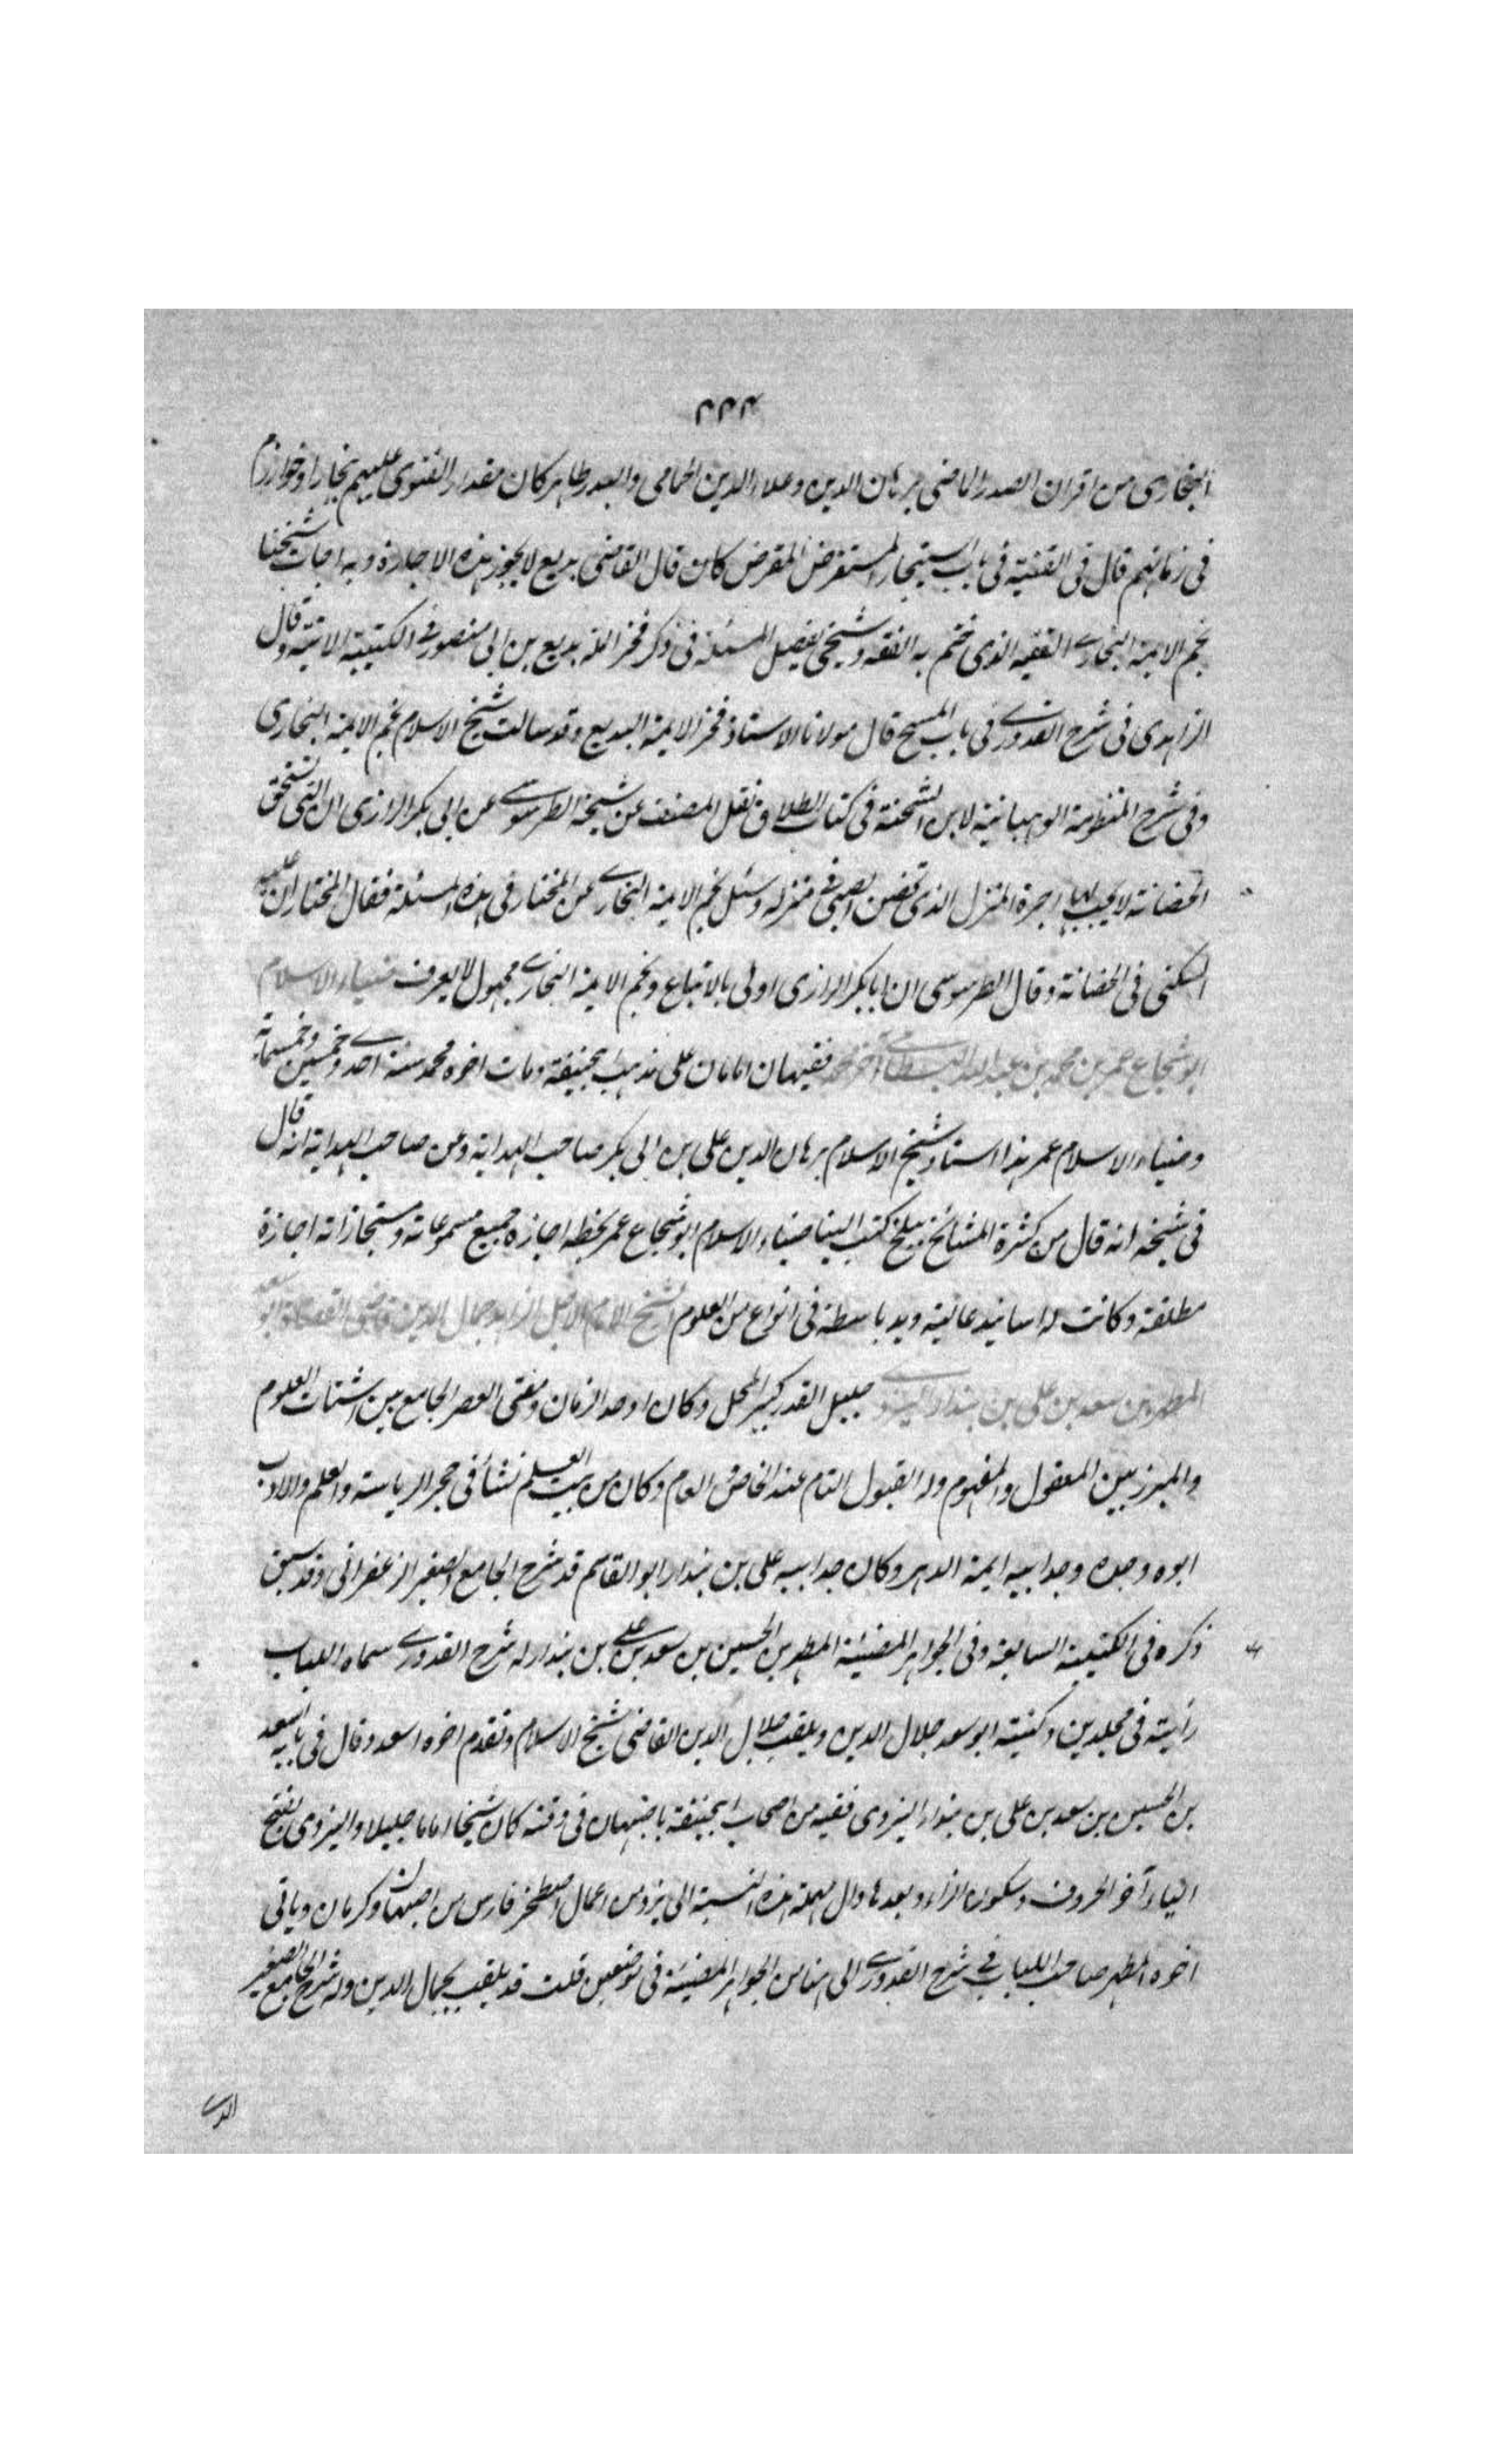 ٣٣٣
البخارى من اقران الصدر الماضى برهان الدين وعلاء الدين الحمامى والبدر طاهر كان مقدار الفتوى عليهم ببخارا وخوارزم
فى زمانهم قال فى القنية فى باب استيجار المستقرض المقرض كان قال القاضى بديع لا يجوز هذه الاجارة وبه اجاب شيخنا
نجم الايمة البخارى الفقيه الذى ختم به الفقه وسيجئ تفصيل المسئلة فى ذكر فخر الملة بديع بن ابى منصور فى الكتيبة الاتية وقال
الزاهدى فى شرح القدورى فى باب المسح قال مولانا الاستاذ فخر الايمة البديع وقد سالت شيخ الاسلام نجم الايمة البخارى
وفى شرح المنظومة الوهبانية لابن الشحنة فى كتاب الطلاق نقل المصنف عن شيخه الطرسوسى عن ابى بكر الرازى ان التى تستحق
الحضانة لا يجب لها اجرة المنزل الذى تحضن الصبى فى منزله وسئل نجم الايمة البخارى عن المختار فى هذه المسئلة فقال المختار ان عليه
السكنى فى الحضانة وقال الطرسوسى ان ابا بكر الرازى اولى بالاتباع ونجم الايمة البخارى مجهول لا يعرف ضياء الاسلام
ابو شجاع عمر بن محمد بن عبد الله البسطامى آخوه محمد فقيهان امامان على مذهب ابيحنيفة ومات اخوه محمد سنة احدى وخمسين وخمسماية
وضياء الاسلام عمر هذا استاد شيخ الاسلام برهان الدين على بن ابى بكر صاحب الهداية وعن صاحب الهداية انه قال
فى شيخه انه قال من كثرة المشائخ ببلخ كتب الينا ضياء الاسلام ابو شجاع عمر بخطه اجازه جميع مسموعاته ومستجازاته اجازة
مطلقة وكانت له اسانيد عالية ويد باسطة فى انواع من العلوم الشيخ الامام الاجل الزاهد جمال الدين قاضى القضاة ابو سعد
المطهر بن سعد بن على بن بندار اليزدى جليل القدر كبير المحل وكان اوحد الزمان ومفتى العصر الجامع بين اشتات العلوم
والمبرز بين المعقول والمفهوم وله القبول التام عند الخاص والعام وكان من بيت العلم نشأ فى حجر الرياسة والعلم والادب
ابوه وجده وجد ابيه ايمة الدهر وكان جد ابيه على بن بندار ابو القاسم قد شرح الجامع الصغير الزعفرانى وقد سبق
ذكره فى الكتيبة السابعة وفى الجواهر المضيئة المطهر بن الحسين بن سعد بن على بن بندار له شرح القدورى سماه اللباب
رأيته فى مجلدين وكنيته ابو سعد جلال الدين ويلقب جلال الدين القاضى شيخ الاسلام وتقدم اخوه اسعد وقال فى بابه اسعد
بن الحسين بن سعد بن على بن بندار اليزدى فقيه من اصحاب ابيحنيفة باصبهان فى وقته كان شيخا اماما جليلا واليزدى بفتح
الياء آخر الحروف وسكون الزاء وبعدها دال مهملة هذه النسبة الى يزد من اعمال اصطخر فارس بين اصبهان وكرمان وياتى
اخوه المطهر صاحب اللباب فى شرح القدورى الى هنا من الجواهر المضيئة فى موضعين قلت قد يلقب بجمال الدين وله شرح الجامع الصغير
الذى